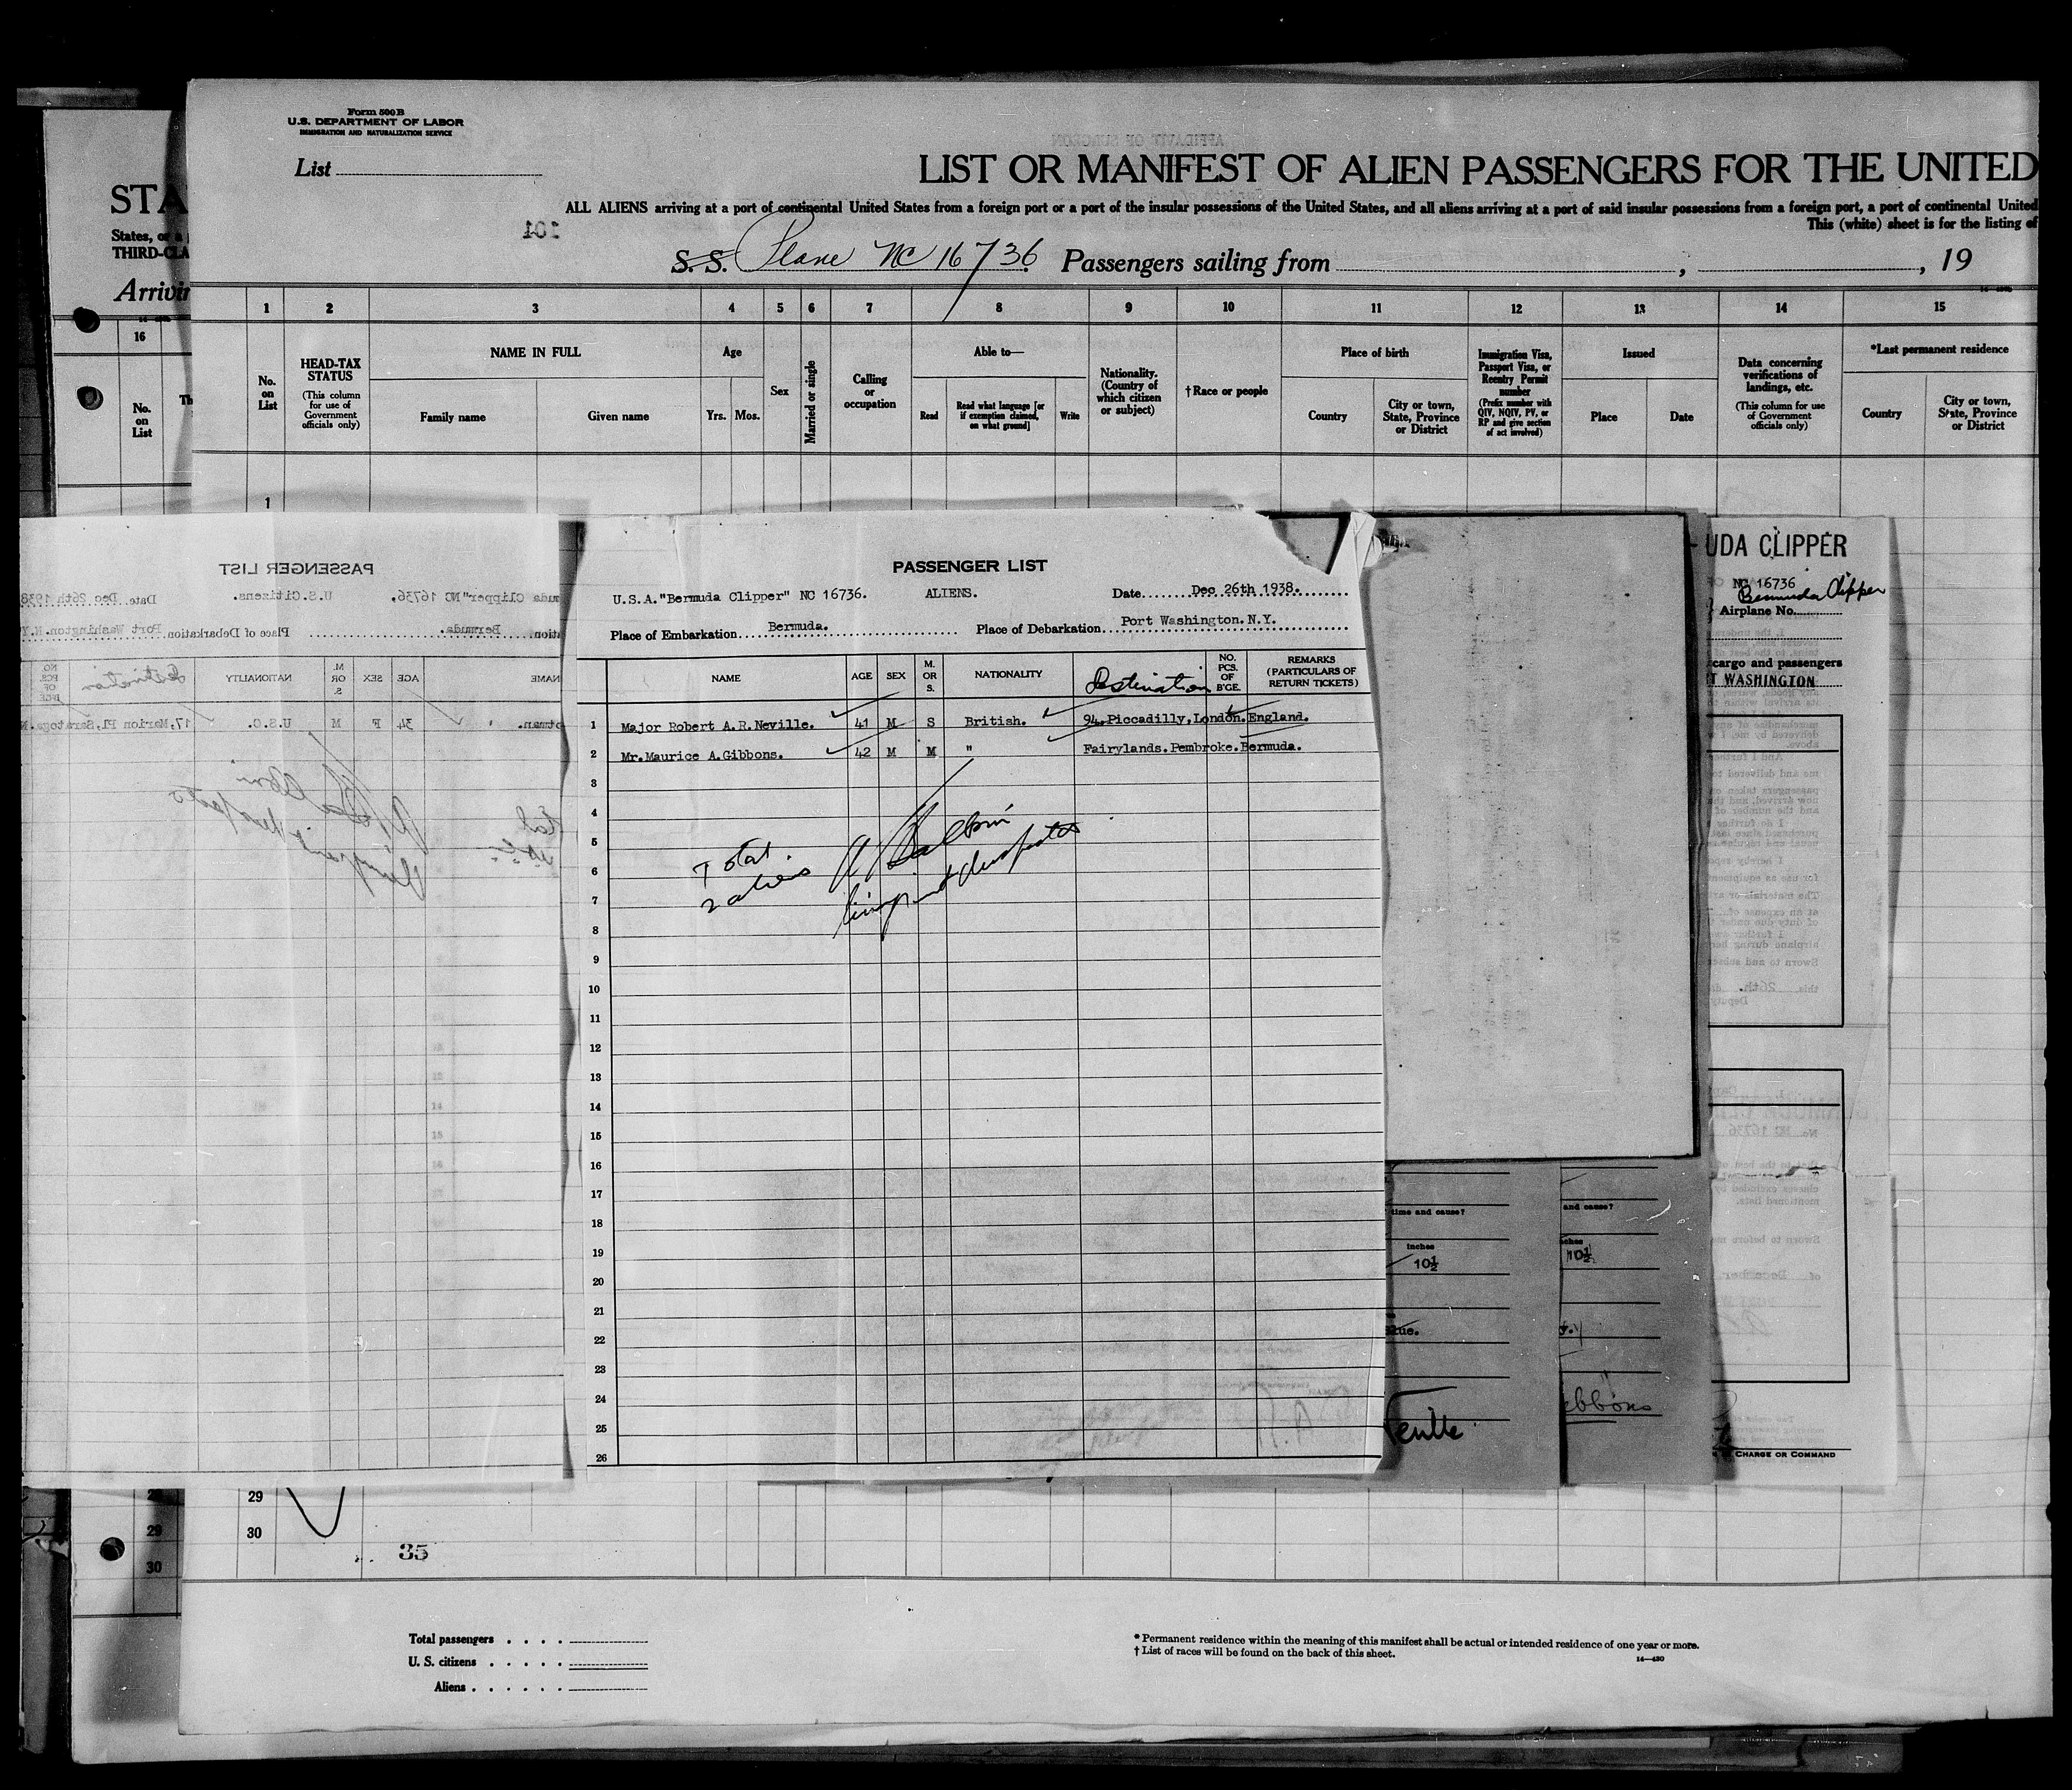 Form 500B
U.S. DEPARTMENT OF LABOR
IMMIGRATION AND NATURALIZATION SERVICE
List
LIST OR MANIFEST OF ALIEN PASSENGERS FOR THE UNITED
ALL ALIENS arriving at a port of continental United States from a foreign port or a port of the insular possessions of the United States, and all aliens arriving at a port of said insular possessions from a foreign port, a port of continental United
This (white) sheet is for the listing of
101
S. S. Plane NC 16736 Passengers sailing from , , 19
STA
States, or a
THIRD-CLA
Arrivin
16
No. on List
Th
1 2 3 4 5 6 7 8 9 10 11 12 13 14 15
No. on List
HEAD-TAX STATUS
(This column for use of Government officials only)
NAME IN FULL
Family name
Given name
Age
Yrs. Mos.
Sex
Married or single
Calling or occupation
Able to—
Read
Read what language [or if exemption claimed, on what ground]
Write
Nationality. (Country of which citizen or subject)
† Race or people
Place of birth
Country
City or town, State, Province or District
Immigration Visa, Passport Visa, or Reentry Permit number
(Prefix number with QIV, NQIV, PV, or RP and give section of act involved)
Issued
Place
Date
Data concerning verifications of landings, etc.
(This column for use of Government officials only)
*Last permanent residence
Country
City or town, State, Province or District
1
PASSENGER LIST
uda Clipper" NC 16736. U.S.Citizens. Date Dec 26th 1938
ation Bermuda. Place of Debarkation Port Washington.N.Y
NAME AGE SEX M. OR S. NATIONALITY Destination NO. PCS. OF B'GE.
otman. 34 F M U.S.C. 17,Marion Pl,Saratoga.N
PASSENGER LIST
U.S.A."Bermuda Clipper" NC 16736. ALIENS. Date Dec 26th 1938.
Place of Embarkation Bermuda. Place of Debarkation Port Washington.N.Y.
NAME AGE SEX M. OR S. NATIONALITY Destination NO. PCS. OF B'GE. REMARKS (PARTICULARS OF RETURN TICKETS)
1 Major Robert A.R.Neville. 41 M S British. 94.Piccadilly,London.England.
2 Mr.Maurice A.Gibbons. 42 M M " Fairylands.Pembroke.Bermuda.
3
4
5
6
7
8
9
10
11
12
13
14
15
16
17
18
19
20
21
22
23
24
25
26
Total
2 aliens
UDA CLIPPER
NC 16736
Bermuda Clipper
Airplane No.
cargo and passengers
T WASHINGTON
time and cause?
Inches
10½
and cause?
10½
Blue.
eville
ibbons
CHARGE OR COMMAND
29
30
29
30
35
Total passengers
U. S. citizens
Aliens
* Permanent residence within the meaning of this manifest shall be actual or intended residence of one year or more.
† List of races will be found on the back of this sheet.
14—430